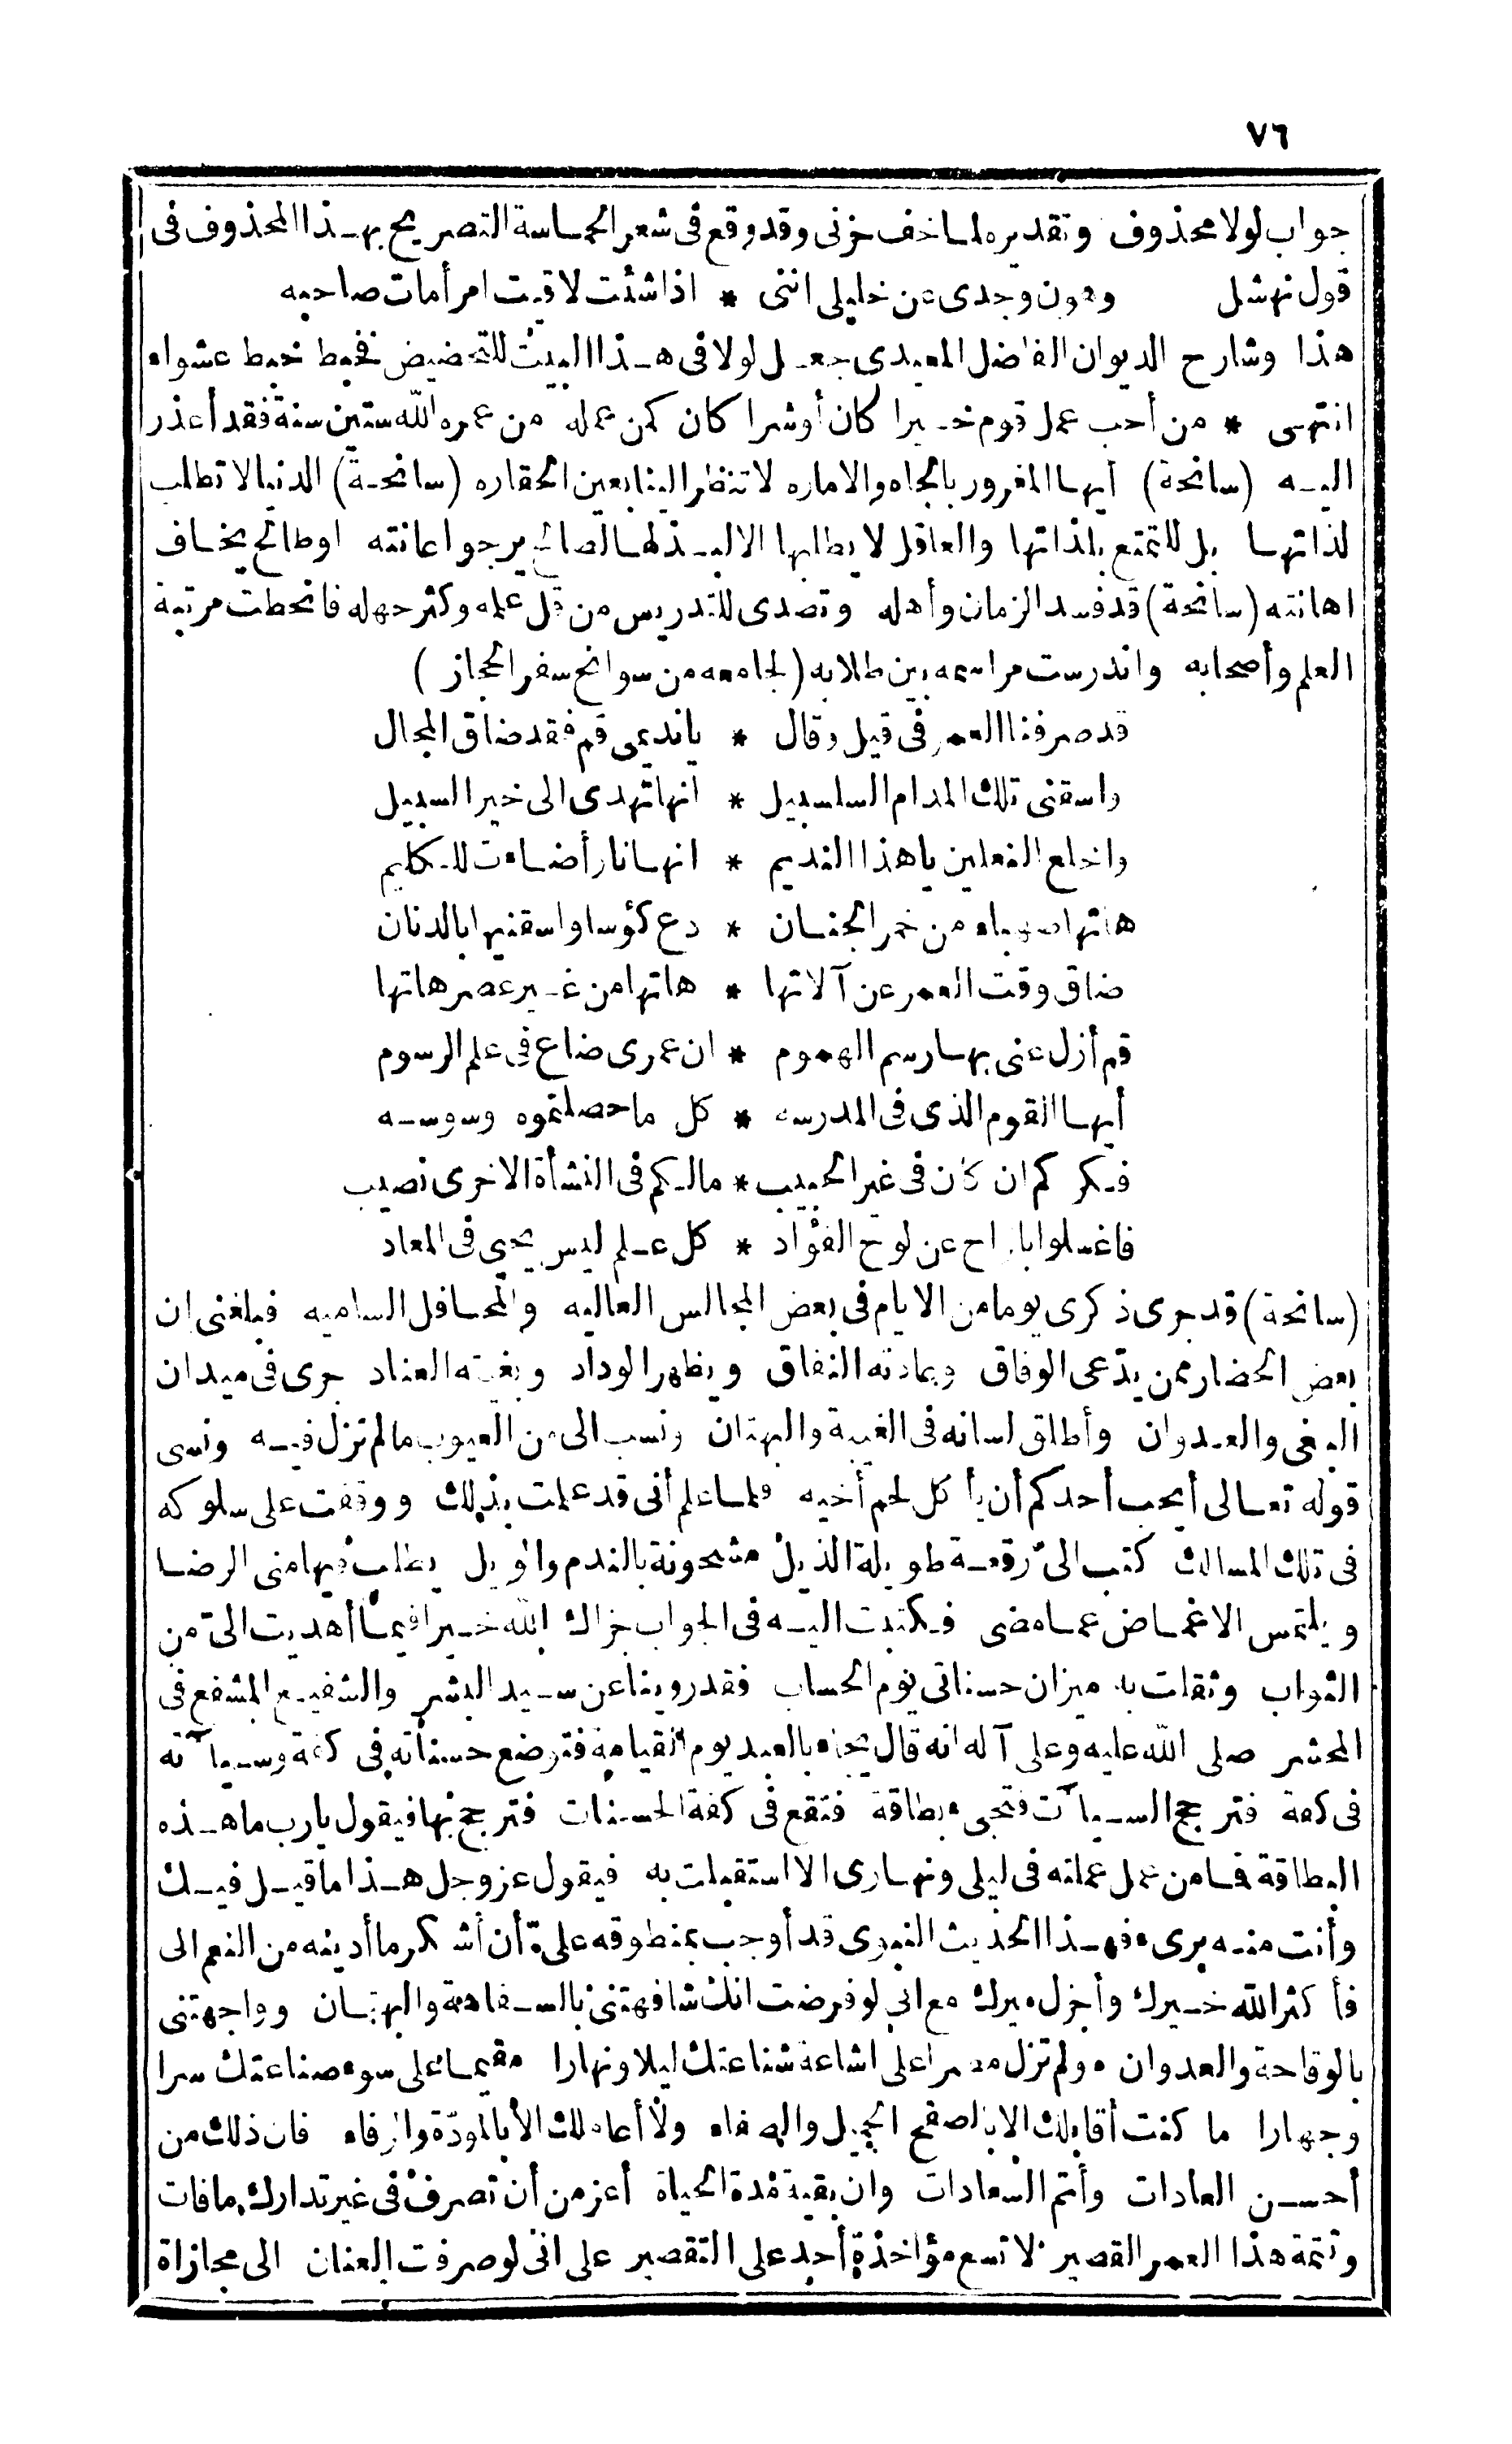 ٧٦
جواب لولا محذوف وتقديره لما خف حزنى وقد وقع فى شعر الحماسة التصريح بهذا المحذوف فى
قول نهشل وهون وجدى عن خليلى اننى * اذا شئت لاقيت امرأ مات صاحبه
هذا وشارح الديوان الفاضل الميبدى جعل لولا فى هذا البيت للتحضيض فخبط خبط عشواء
انتهى * من أحب عمل قوم خيرا كان أو شرا كان كمن عمله من عمره الله ستين سنة فقد أعذر
اليه (سانحة) أيها المغرور بالجاه والاماره لا تنظر الينا بعين الحقاره (سانحة) الدنيا لا تطلب
لذاتها بل للتمتع بلذاتها والعاقل لا يطلبها الا ليبذلها لصالح يرجو اعانته او طالح يخاف
اهانته (سانحة) قد فسد الزمان وأهله وتصدى للتدريس من قل علمه وكثر جهله فانحطت مرتبة
العلم وأصحابه واندرست مراسمه بين طلابه (لجامعه من سوانح سفر الحجاز)
قد صرفنا العمر فى قيل وقال * يا نديمى قم فقد ضاق المجال
واسقنى تلك المدام السلسبيل * انها تهدى الى خير السبيل
واخلع النعلين يا هذا النديم * انها نار أضاءت للكليم
هاتها صهباء من خمر الجنان * دع كؤسا واسقنيها بالدنان
ضاق وقت العمر عن آلاتها * هاتها من غير عصر هاتها
قم أزل عنى بها رسم الهموم * ان عمرى ضاع فى علم الرسوم
أيها القوم الذى فى المدرسه * كل ما حصلتموه وسوسه
فكركم ان كان فى غير الحبيب * مالكم فى النشأة الاخرى نصيب
فاغسلوا بالراح عن لوح الفؤاد * كل علم ليس يحيى فى المعاد
(سانحة) قد جرى ذكرى يوما من الايام فى بعض المجالس العاليه والمحافل الساميه فبلغنى ان
بعض الحضار ممن يدّعى الوفاق وعادته النفاق ويظهر الوداد وبغيته العناد جرى فى ميدان
البغى والعدوان وأطلق لسانه فى الغيبة والبهتان ونسب الى من العيوب ما لم تزل فيه ونسى
قوله تعالى أيحب أحدكم أن يأكل لحم أخيه فلما علم أنى قد علمت بذلك ووقفت على سلوكه
فى تلك المسالك كتب الىّ رقعة طويلة الذيل مشحونة بالندم والويل يطلب فيها منى الرضا
ويلتمس الاغماض عما مضى فكتبت اليه فى الجواب جزاك الله خيرا فيما أهديت الىّ من
الثواب وثقلت به ميزان حسناتى يوم الحساب فقد روينا عن سيد البشر والشفيع المشفع فى
المحشر صلى الله عليه وعلى آله انه قال يجاء بالعبد يوم القيامة فتوضع حسناته فى كفة وسيآته
فى كفة فترجح السيآت فتجىء بطاقة فتقع فى كفة الحسنات فترجح بها فيقول يارب ما هذه
البطاقة فما من عمل عملته فى ليلى ونهارى الا استقبلت به فيقول عز وجل هذا ما قيل فيك
وأنت منه برىء فهذا الحديث النبوى قد أوجب بمنطوقه علىّ أن أشكر ما أديته من النعم الى
فأكثر الله خيرك وأجزل ميرك مع انى لو فرضت انك شافهتنى بالسفاهة والبهتان وواجهتنى
بالوقاحة والعدوان ولم تزل مصرا على اشاعة شناعتك ليلا ونهارا مقيما على سوء صناعتك سرا
وجهارا ما كنت أقابلك الا بالصفح الجميل والصفاء ولا أعاملك الا بالمودّة والوفاء فان ذلك من
أحسن العادات وأتم السعادات وان بقية مدة الحياة أعز من أن تصرف فى غير تدارك ما فات
وتتمة هذا العمر القصير لا تسع مؤاخذة أحد على التقصير على انى لو صرفت العنان الى مجازاة